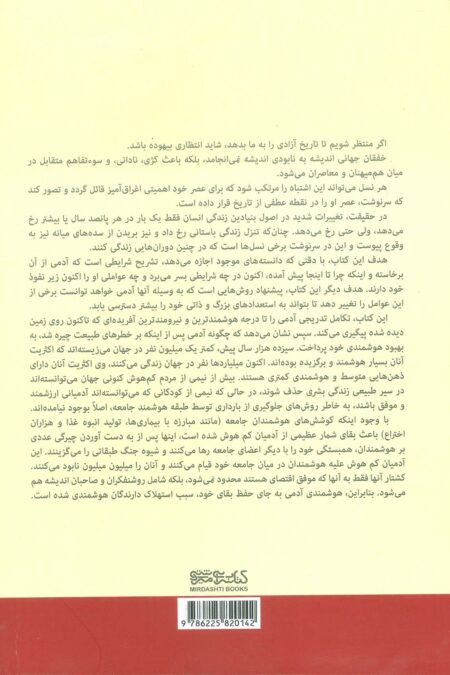 اگر منتظر شویم تا تاریخ آزادی را به ما بدهد، شاید انتظاری بیهوده باشد.
خفقان جهانی اندیشه به نابودی اندیشه نمی‌انجامد، بلکه باعث کژی، نادانی، و سوءتفاهم متقابل در
میان هم‌میهنان و معاصران می‌شود.
هر نسل می‌تواند این اشتباه را مرتکب شود که برای عصر خود اهمیتی اغراق‌آمیز قائل گردد و تصور کند
که سرنوشت، عصر او را در نقطه عطفی از تاریخ قرار داده است.
در حقیقت، تغییرات شدید در اصول بنیادین زندگی انسان فقط یک بار در هر پانصد سال یا بیشتر رخ
می‌دهد، ولی حتی رخ می‌دهد. چنان‌که تنزل زندگی باستانی رخ داد و نیز بریدن از سده‌های میانه نیز به
وقوع پیوست و این در سرنوشت برخی نسل‌ها است که در چنین دوران‌هایی زندگی کنند.
هدف این کتاب، با دقتی که دانسته‌های موجود اجازه می‌دهد، تشریح شرایطی است که آدمی از آن
برخاسته و اینکه چرا تا اینجا پیش آمده، اکنون در چه شرایطی بسر می‌برد و چه عواملی او را اکنون زیر نفوذ
خود دارند. هدف دیگر این کتاب، پیشنهاد روش‌هایی است که به وسیله آنها آدمی خواهد توانست برخی از
این عوامل را تغییر دهد تا بتواند به استعدادهای بزرگ و ذاتی خود را بیشتر دسترسی یابد.
این کتاب، تکامل تدریجی آدمی را تا درجه هوشمندترین و نیرومندترین آفریده‌ای که تاکنون روی زمین
دیده شده پیگیری می‌کند. سپس نشان می‌دهد که چگونه آدمی پس از اینکه بر خطرهای طبیعت چیره شد، به
بهبود هوشمندی خود پرداخت. سیزده هزار سال پیش، کمتر یک میلیون نفر در جهان می‌زیسته‌اند که اکثریت
آنان بسیار هوشمند و برگزیده بوده‌اند. اکنون میلیاردها نفر در جهان زندگی می‌کنند، وی اکثریت آنان دارای
ذهن‌هایی متوسط و هوشمندی کمتری هستند. بیش از نیمی از مردم کم‌هوش کنونی جهان می‌توانسته‌اند
در سیر طبیعی زندگی بشری حذف شوند، در حالی که نیمی از کودکانی که می‌توانسته‌اند آدمیانی ارزشمند
و موفق باشند، به خاطر روش‌های جلوگیری از بارداری توسط طبقه هوشمند جامعه، اصلاً بوجود نیامده‌اند.
با وجود اینکه کوشش‌های هوشمندان جامعه (مانند مبارزه با بیماری‌ها، تولید انبوه غذا و هزاران
اختراع) باعث بقای شمار عظیمی از آدمیان کم هوش شده است، اینها پس از به دست آوردن چیرگی عددی
بر هوشمندان، همبستگی خود را با دیگر اعضای جامعه رها می‌کنند و شیوه جنگ طبقاتی را می‌گزینند. این
آدمیان کم هوش علیه هوشمندان در میان جامعه خود قیام می‌کنند و آنان را میلیون میلیون نابود می‌کنند.
کشتار آنها فقط به آنها که موفق اقتصادی هستند محدود نمی‌شود، بلکه شامل روشنفکران و صاحبان اندیشه هم
می‌شود. بنابراین، هوشمندی آدمی به جای حفظ بقای خود، سبب استهلاک دارندگان هوشمندی شده است.
کتابسرای میردشتی
MIRDASHTI BOOKS
9 786225 820142